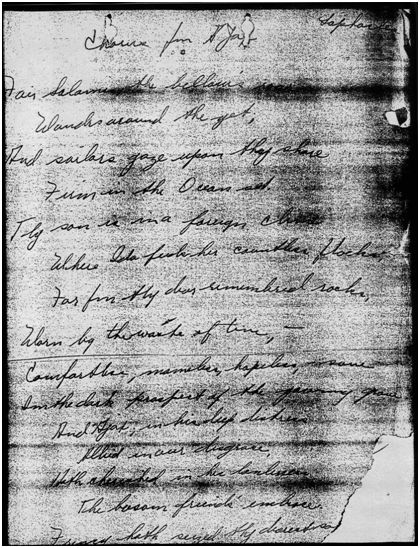 Sophocles
Chorus from Ajax
Fair Salamis, the billow's roar
Wanders around thee yet,
And sailors gaze upon thy shore
Firm in the Ocean set.
Thy son is in a foreign clime
Where Ida feeds her countless flocks,
Far from thy dear remembered rocks,
Worn by the waste of time, —
Comfortless, nameless, hopeless, — save
In the dark prospect of the yawning grave
And Ajax, in his deep distress
Allied in our disgrace,
Hath cherished in his loneliness
The bosom friend's embrace.
Frenzy hath seized thy dearest son